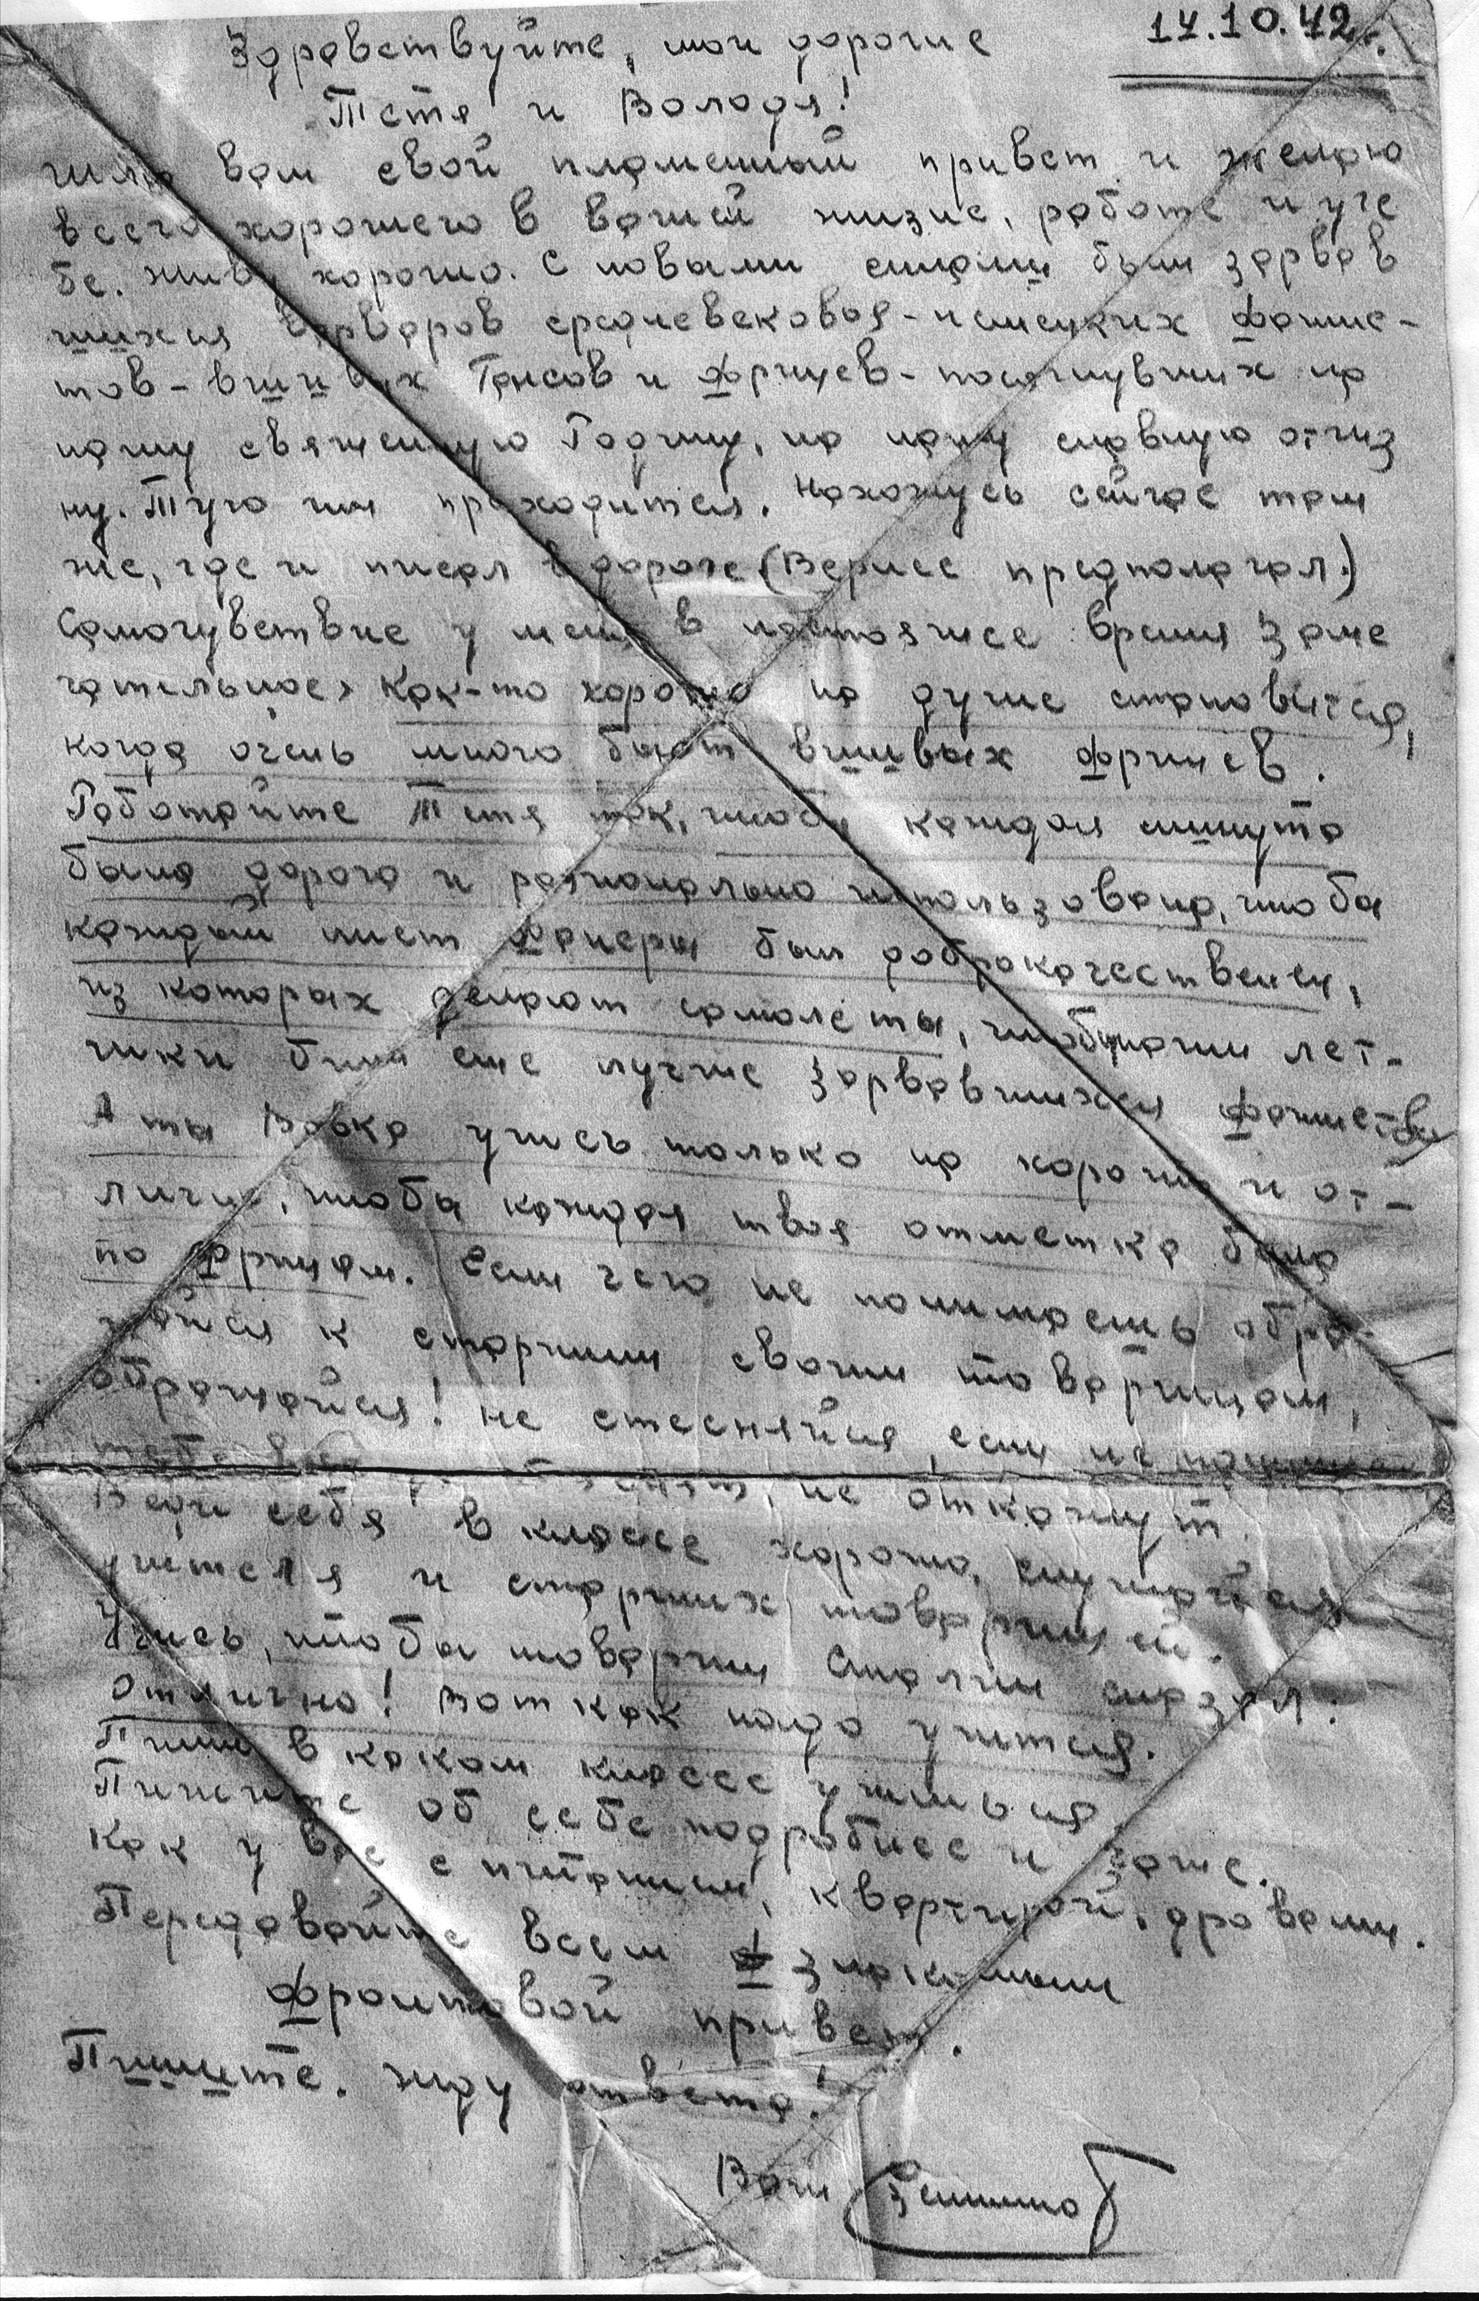 14.10.42г.
Здравствуйте, мои дорогие
Тетя и Володя!
шлю вам свой пламенный привет и желаю
всего хорошего в вашей жизне, работе и уче
бе. Живу хорошо. С новыми силами бьем зарвав
шихся варваров средневековья-немецких фашис-
тов-вшивых Гансов и фрицев-посягнувших на
нашу священную Родину, на нашу славную отчиз
ну. Туго им приходится. Нахожусь сейчас там
же, где и писал в дороге (Вернее предполагал.)
Самочувствие у меня в настоящее время заме
чательное, как-то хорошо на душе становится,
когда очень много бьют вшивых фрицев.
Работайте Тетя так, чтобы каждая минута
была дорога и рационально использована, чтобы
каждый лист фанеры был доброкачественен,
из которых делают самолеты, чтобы наши лет-
чики били еще лучше зарвавшихся фашистов
А ты Вовка учись только на хорошо и от-
лично, чтобы каждая твоя отметка била
по фрицам. Если чего не понимаешь обра-
щайся к старшим своим товарищам,
обращайся! Не стесняйся, если не
не откажут.
Веди себя в классе хорошо, слушайся
учителя и старших товарищей.
Учись, чтобы товарищ Сталин сказал:
Отлично! Вот как надо учится.
Пиши в каком классе учишься
Пишите об себе подробнее и чаще.
Как у вас с питанием, квартирой, дровами.
Передавайте всем знакомым
фронтовой привет.
Пишите. Жду ответа!
Ваш